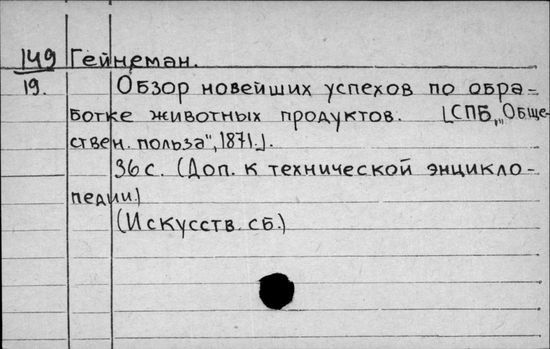 149 Гейнеман.
19. Обзор новейших успехов по обра-
ботке животных продуктов. [СПБ, „Обще-
ствен. польза", 1871.].
36 с. (Доп. к технической энцикло-
педии.)
(Искусств. сб.)